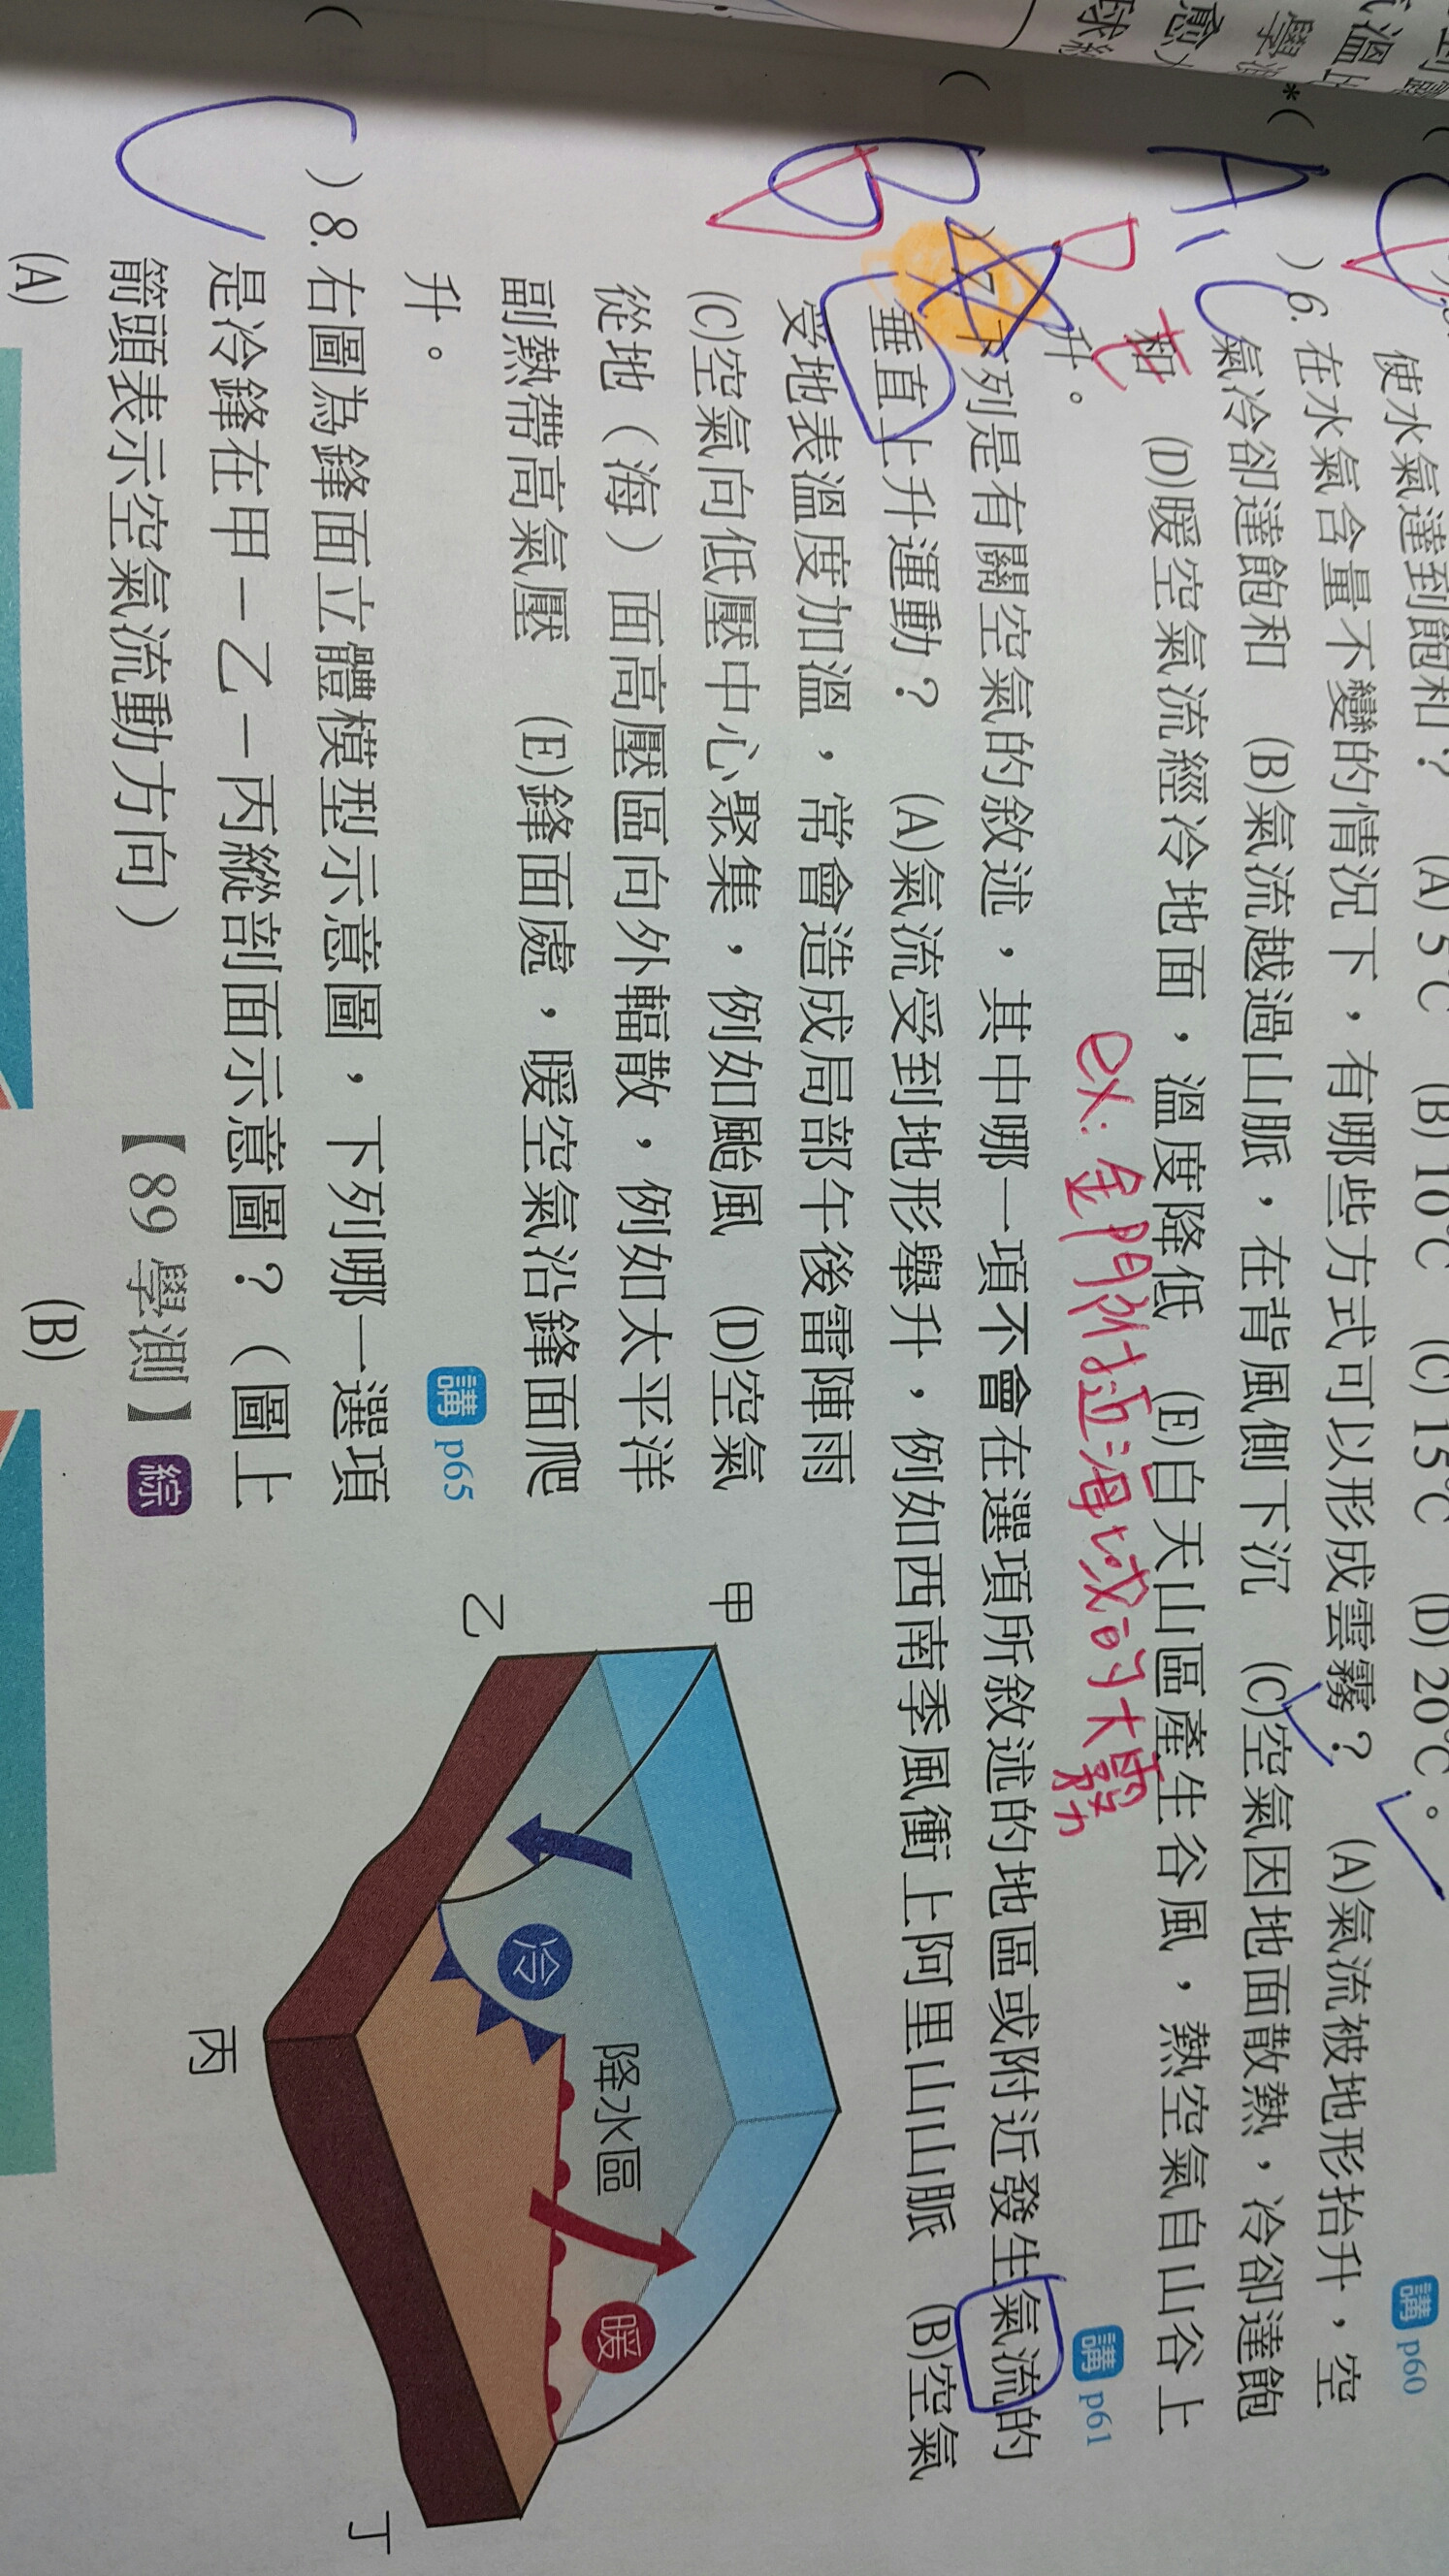 使水氣達到飽和？ (A) 5℃ (B) 10℃ (C) 15℃ (D) 20℃。
講 p60
*( A, C )6. 在水氣含量不變的情況下，有哪些方式可以形成雲霧？ (A)氣流被地形抬升，空
氣冷卻達飽和 (B)氣流越過山脈，在背風側下沉 (C)空氣因地面散熱，冷卻達飽
和 (D)暖空氣流經冷地面，溫度降低 (E)白天山區產生谷風，熱空氣自山谷上
升。
講 p61
ex: 金門附近海域的大霧
( B )7. 下列是有關空氣的敘述，其中哪一項不會在選項所敘述的地區或附近發生氣流的
垂直上升運動？ (A)氣流受到地形舉升，例如西南季風衝上阿里山山脈 (B)空氣
受地表溫度加溫，常會造成局部午後雷陣雨
(C)空氣向低壓中心聚集，例如颱風 (D)空氣
從地（海）面高壓區向外輻散，例如太平洋
副熱帶高氣壓 (E)鋒面處，暖空氣沿鋒面爬
升。
講 p65
( C )8. 右圖為鋒面立體模型示意圖，下列哪一選項
是冷鋒在甲－乙－丙縱剖面示意圖？（圖上
箭頭表示空氣流動方向） 【89 學測】 綜
(A) (B)
甲
乙
冷
降水區
暖
丙
丁